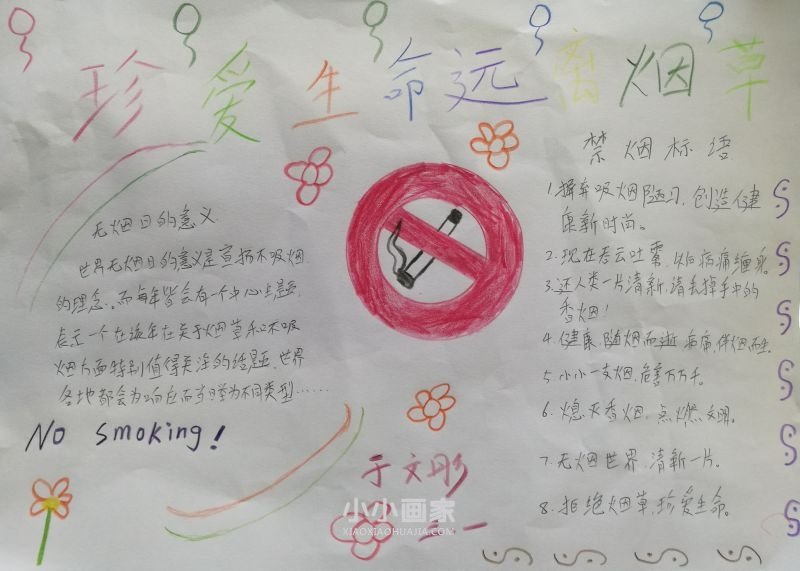 珍爱生命远离烟草
无烟日的意义
世界无烟日的意义是宣扬不吸烟
的理念。而每年皆会有一个中心主题,
表示一个在该年在关于烟草和不吸
烟方面特别值得关注的话题,世界
各地都会为响应而当时为不同类型……
No smoking!
禁烟标语
1.摒弃吸烟陋习,创造健
康新时尚。
2.现在吞云吐雾,以后病痛缠身。
3.还人类一片清新,请丢掉手中的
香烟!
4.健康,随烟而逝。病痛,伴烟而生。
5.小小一支烟,危害万万千。
6.熄灭香烟,点燃文明。
7.无烟世界,清新一片。
8.拒绝烟草,珍爱生命。
于文彤
三一
小小画家
XIAOXIAOHUAJIA.COM